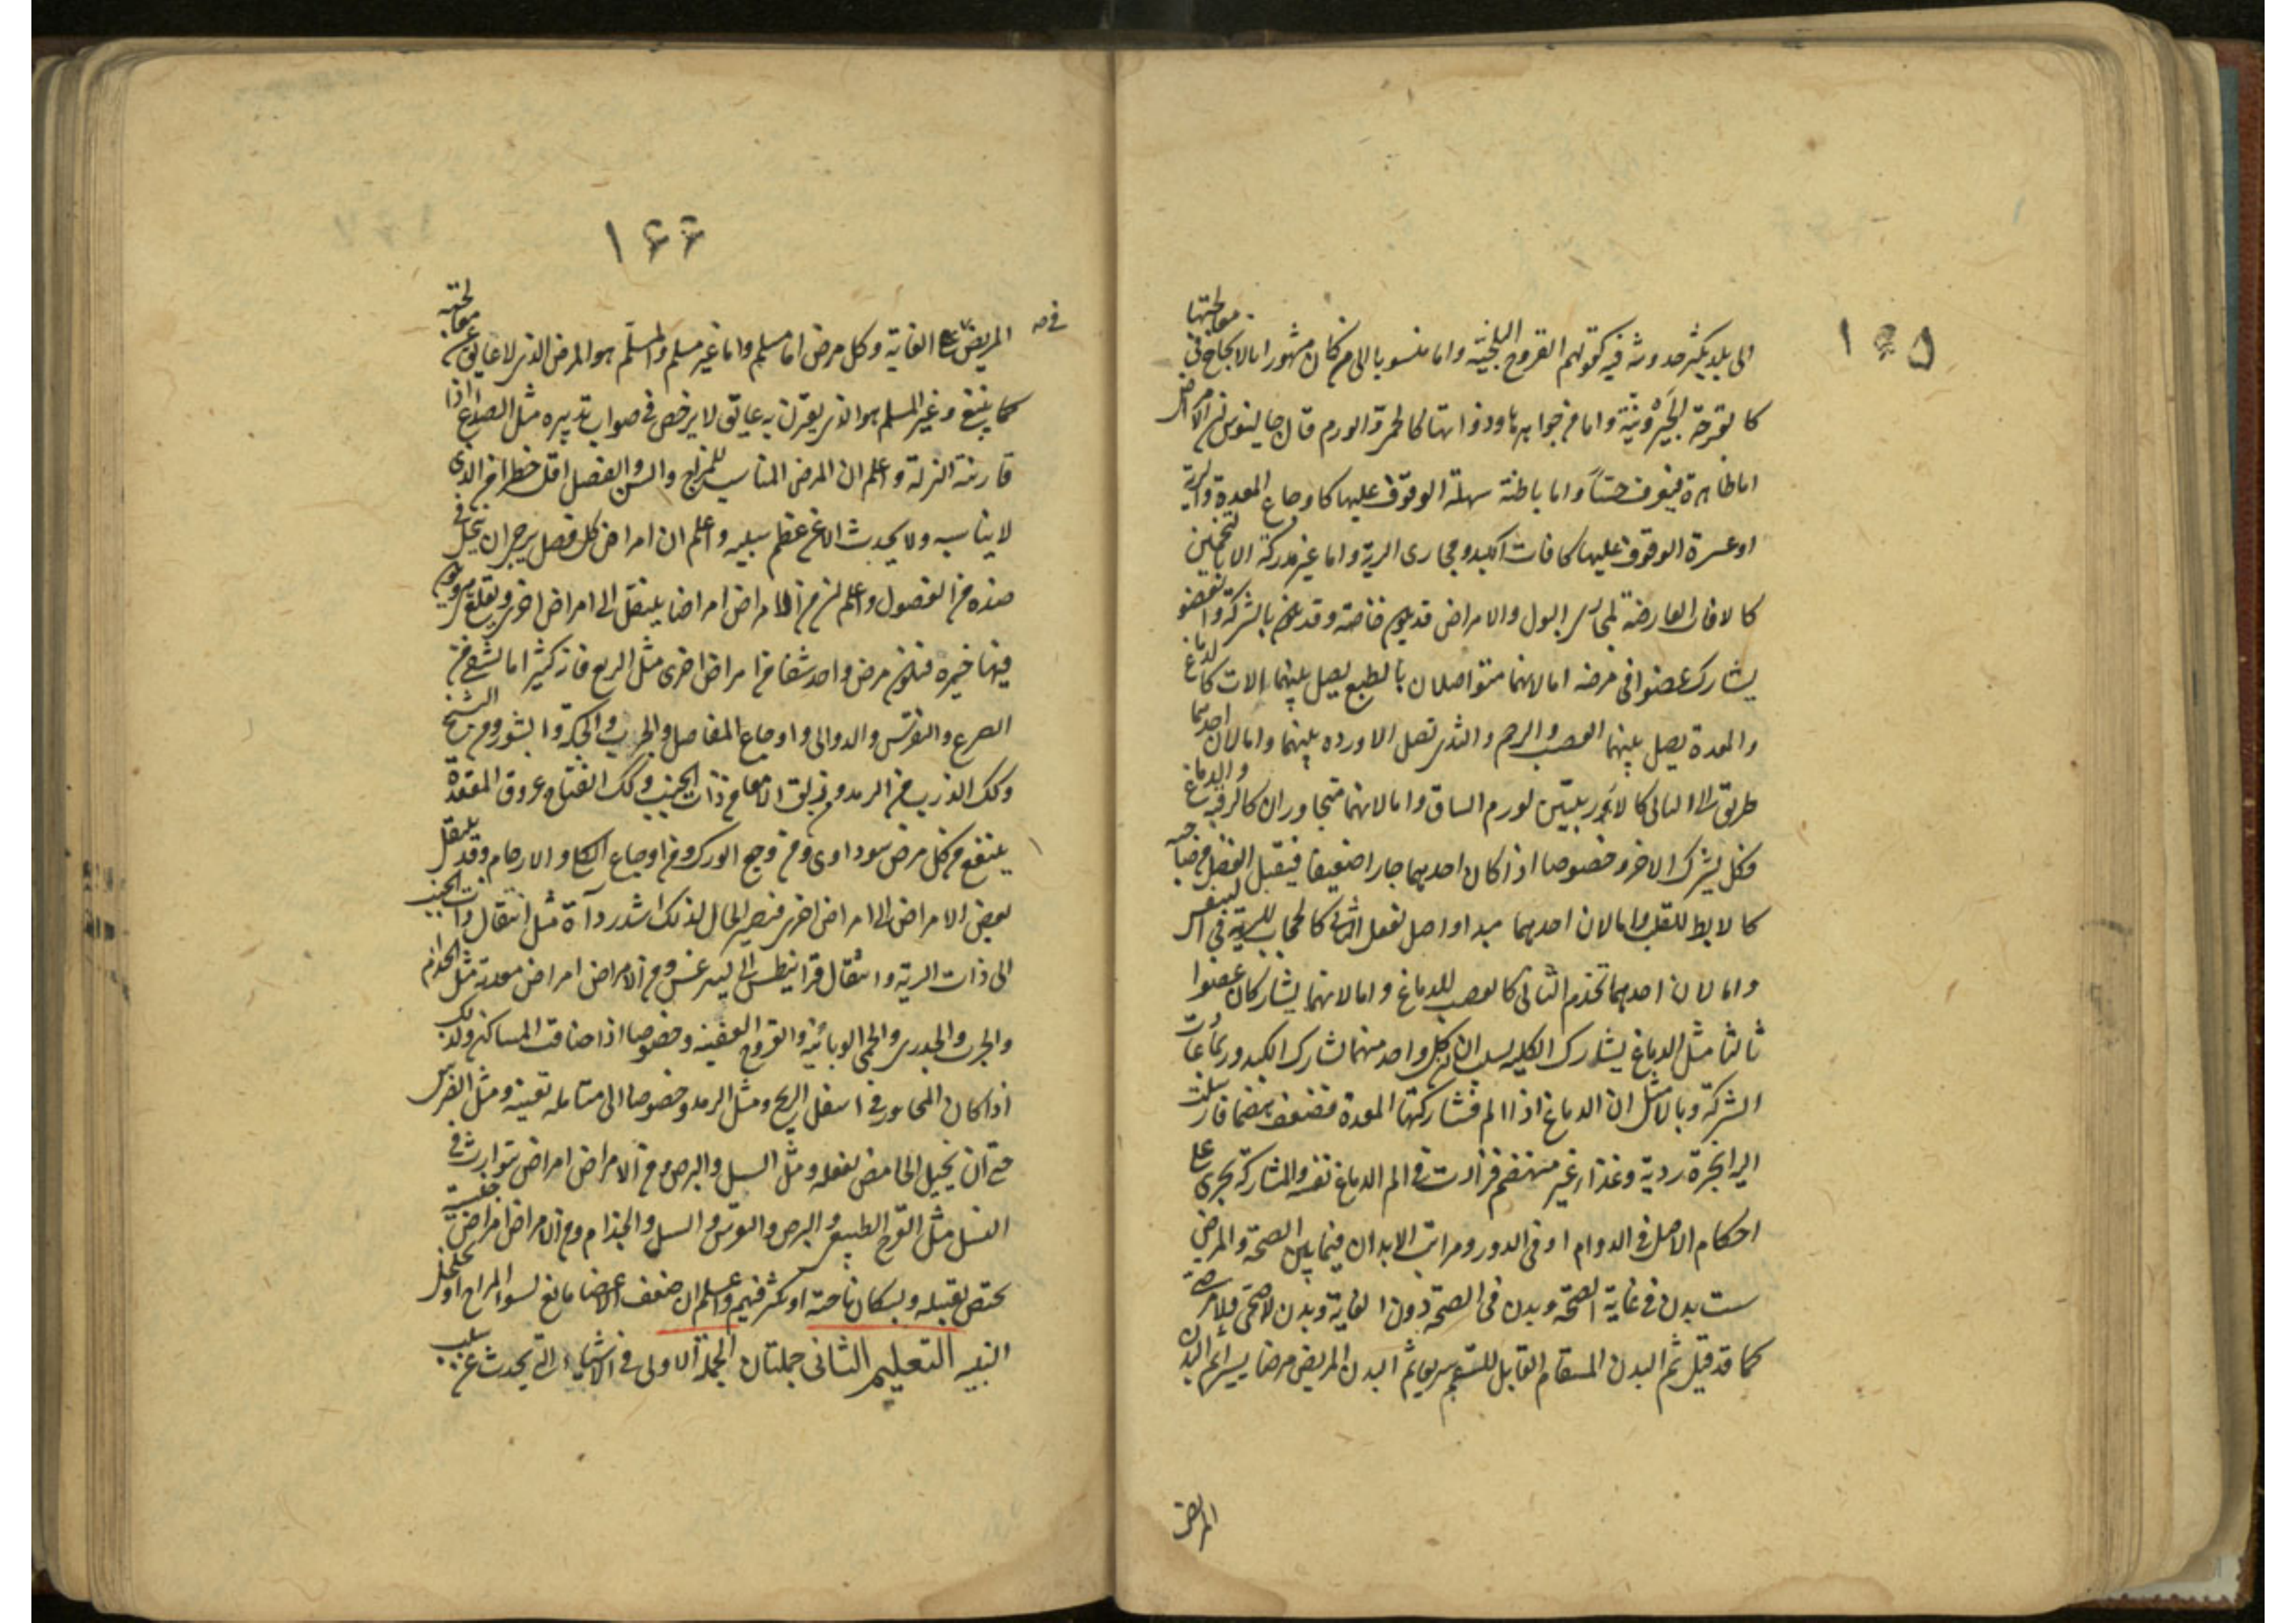 ١٦٥
الى بلد يكثر حدوثه فيه كقولهم القروح البلخية واما منسوبا الى من كان مشهورا بالانجاح في معالجتها
كالقرحة الجيرونية واما من جواهرها وذواتها كالحمى والورم قال جالينوس ان الامراض
اما ظاهرة فيعرف حسا واما باطنة سهلة الوقوف عليها كاوجاع المعدة والرية
او عسرة الوقوف عليها كافات الكبد ومجارى الرية واما غير مدركة الا بالتخمين
كالافات العارضة لمجارى البول والامراض قد يكون خاصة وقد يكون بالشركة والعضو
يشارك عضوا فى مرضه اما لانهما متواصلان بالطبع يصل بينهما الات كالدماغ
والمعدة يصل بينهما العصب والرحم والثدى تصل الاورده بينهما واما لان احدهما
طريق الى الثانى كالاربيتين لورم الساق واما لانهما متجاوران كالرقبة والدماغ
فكل يشرك الاخر وخصوصا اذا كان احدهما جارا ضعيفا فيقبل الفضل من صاحبه
كالابط للقلب واما لان احدهما مبدا واصل لفعل الثانى كالحجاب للرية فى التنفس
واما لان احدهما تخدم الثانى كالعصب للدماغ واما لانهما يشاركان عضوا
ثالثا مثل الدماغ يشارك الكليه بسبب ان كل واحد منهما تشارك الكبد وربما عادت
الشركة وبالا مثل ان الدماغ اذا الم فشاركتها المعدة فضعف هضمها فارسلت
اليه ابخرة ردية وغذاء غير منهضم فزادت فى الم الدماغ نفسه والمشاركة تجرى على
احكام الاصل فى الدوام او فى الدور ومراتب الابدان فيما بين الصحة والمرض
ست بدن فى غاية الصحة وبدن فى الصحة دون الغاية وبدن لا صحى ولا مرضى
كما قد قيل ثم البدن المسقام القابل للسقم سريعا ثم البدن المريض مرضا يسيرا ثم البدن
المريض
١٦٦
المريض فى الغاية وكل مرض اما مسلم واما غير مسلم والمسلم هو المرض الذى لا عايق عن معالجته
كما ينبغى وغير المسلم هو الذى يقترن به عايق لا يرخص فى صواب تدبيره مثل الصداع اذا
قارنته النزلة واعلم ان المرض المناسب للمزاج والسن والفصل اقل خطرا من الذى
لا يناسبه ولا يحدث الا عن عظم سببه واعلم ان امراض كل فصل يرجى ان ينحل فى
ضده من الفصول واعلم ان من الامراض امراضا ينتقل الى امراض اخرى ويقلع هى ويكون
فيها خيره فيكون مرض واحد شفا من امراض اخرى مثل الربع فانه كثيرا ما يشفى من
الصرع والنقرس والدوالى واوجاع المفاصل والجرب والحكة والبثور ومن التشنج
وكك الذرب من الرمد ومن زلق الامعا من ذات الجنب وكك انفتاح عروق المقعدة
ينتفع من كل مرض سوداوى ومن وجع الورك ومن اوجاع الكلى والارحام وقد ينتقل
بعض الامراض الى امراض اخرى فتصير الحال لذلك اشد رداءة مثل انتقال ذات الجنب
الى ذات الرية وانتقال قرانيطس الى ليثرغس ومن الامراض امراض معدية مثل الجذام
والجرب والجدرى والحمى الوبائية والقروح العفنة وخصوصا اذا ضاقت المساكن وكذلك
اذا كان المجاور فى اسفل الريح ومثل الرمد وخصوصا الى متامله بعينه ومثل الضرس
حتى ان تخيل الحامض يفعله ومثل السل والبرص ومن الامراض امراض يتوارث فى
النسل مثل القرع الطبيعى والبرص والنقرس والسل والجذام ومن الامراض امراض جنسية
يختص بقبيله وبسكان ناحية او يكثر فيهم واعلم ان ضعف الاعضا تابع لسوء المزاج او تخلخل
البنيه التعليم الثانى جملتان الجملة الاولى فى الاشياء التى يحدث عن سبب